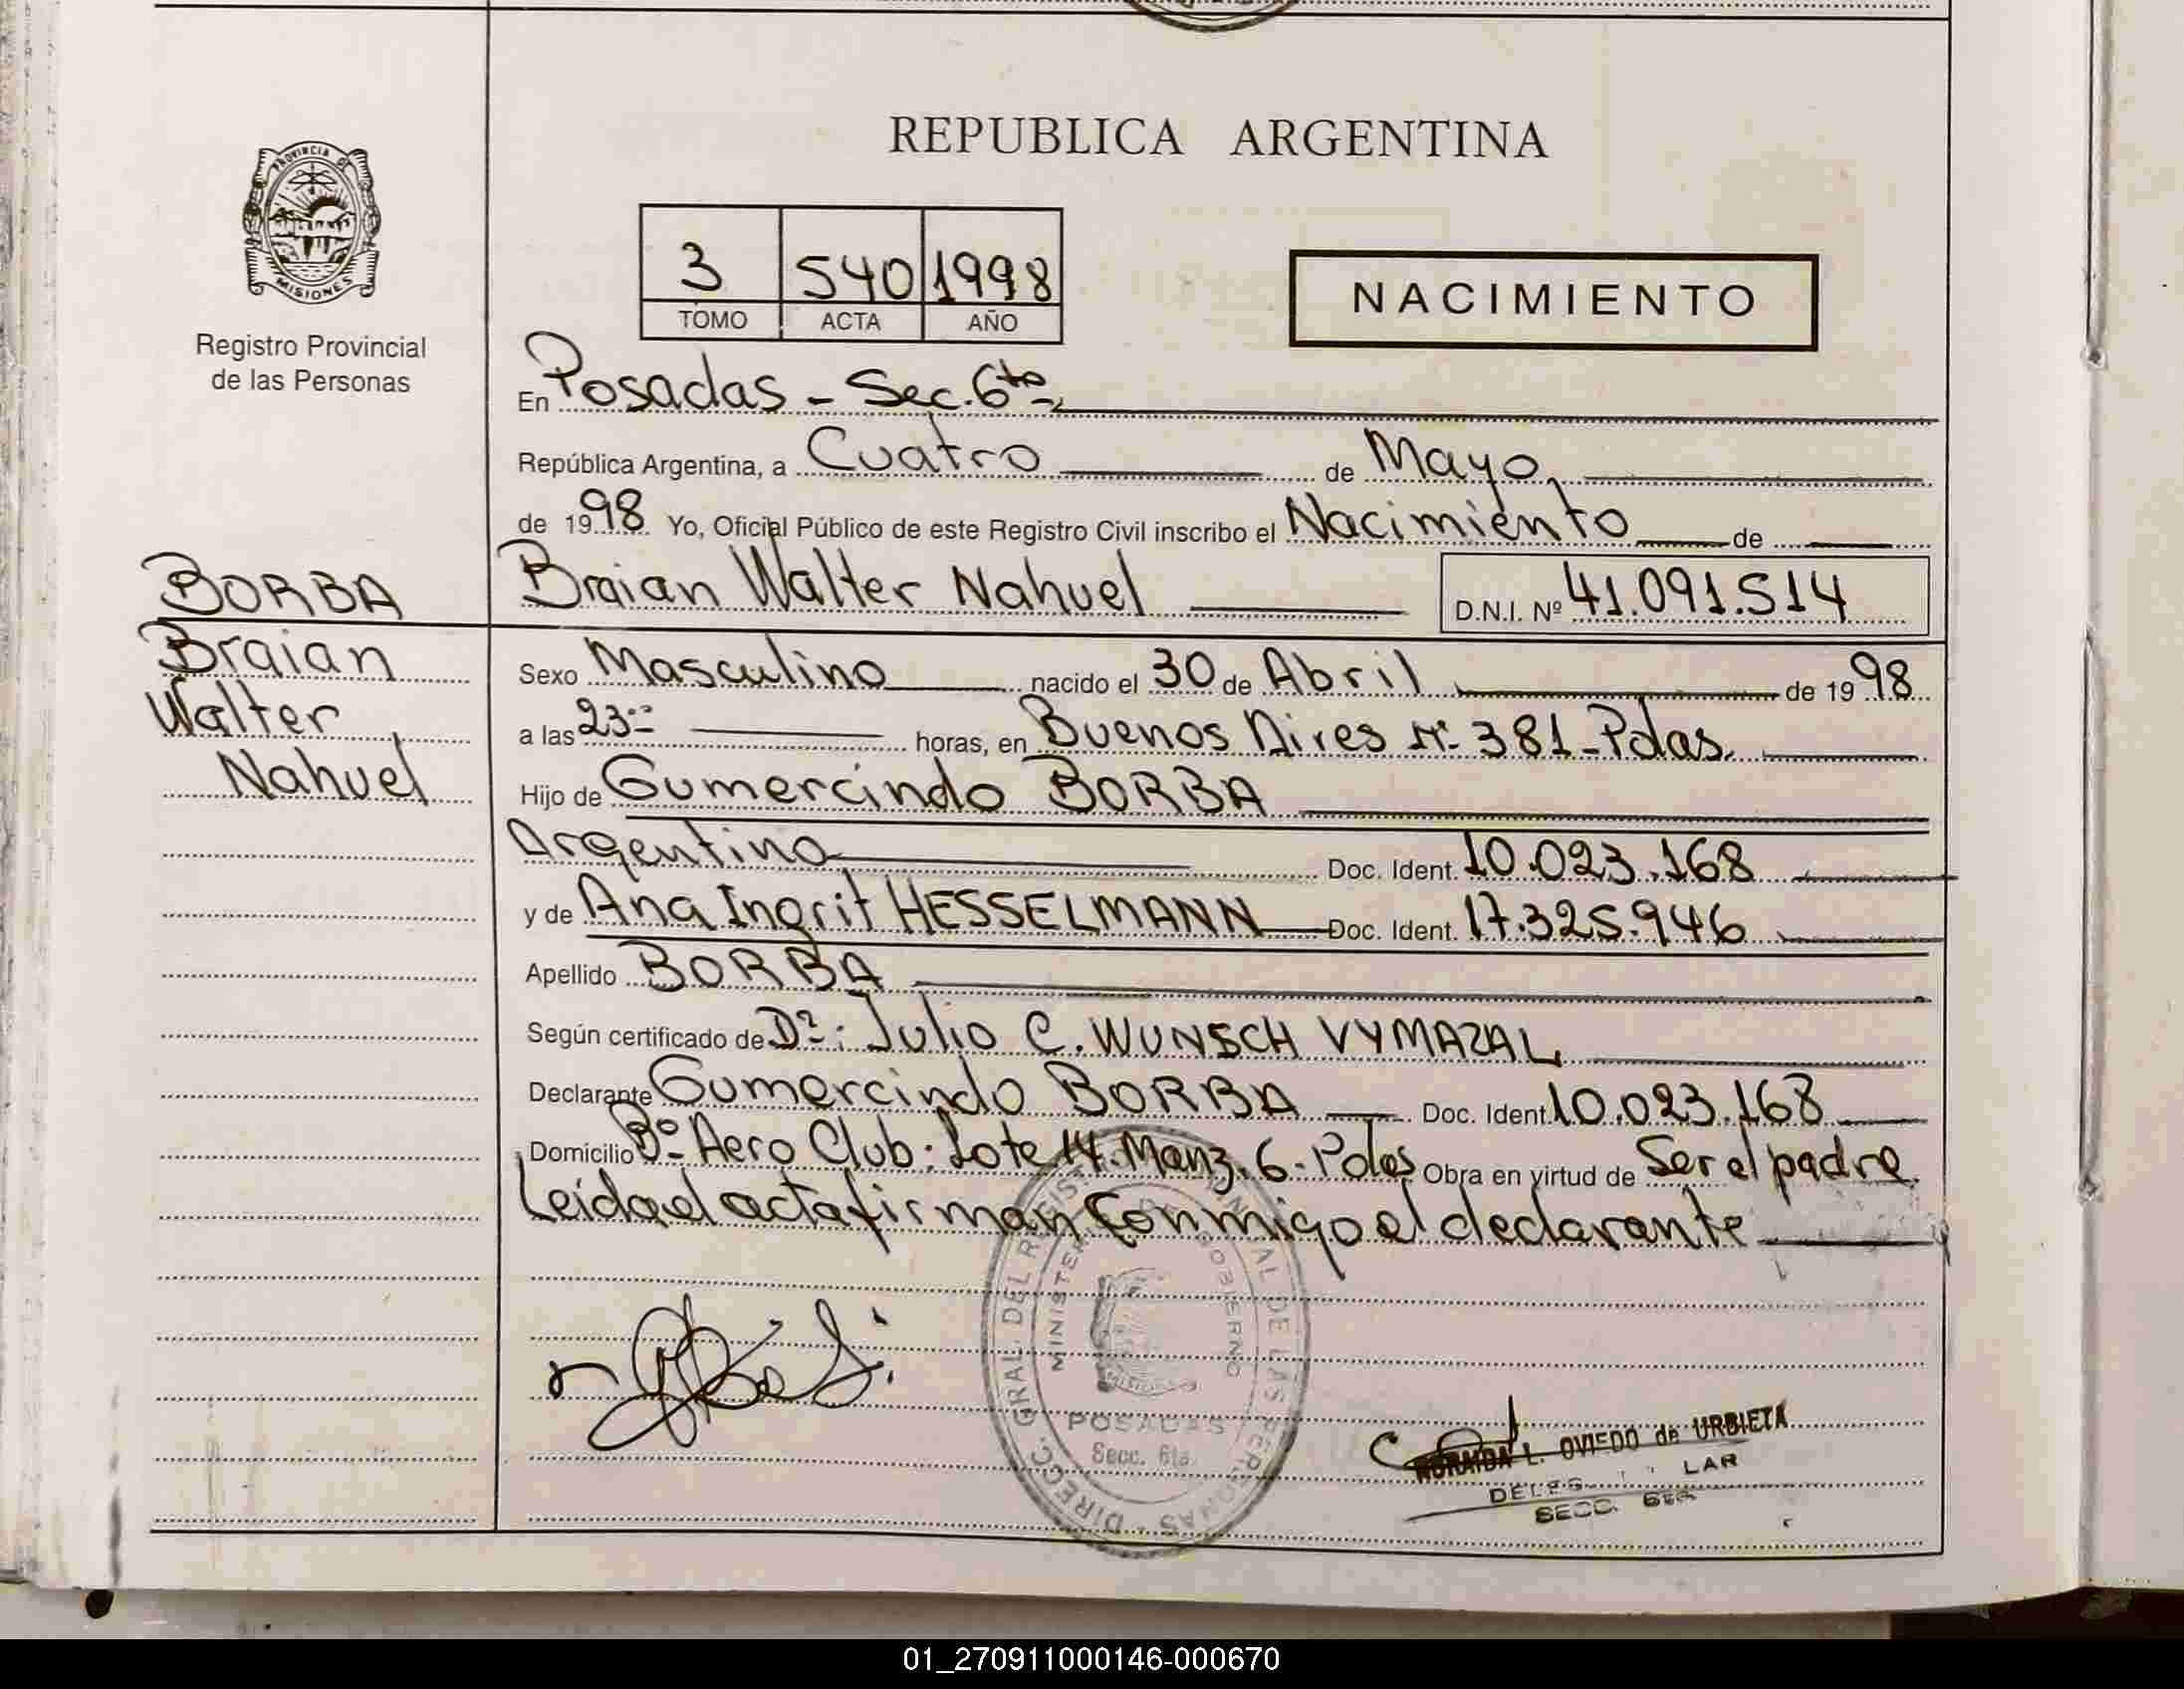 REPUBLICA ARGENTINA
PROVINCIA DE
MISIONES
Registro Provincial
de las Personas
3 540 1998
TOMO ACTA AÑO
NACIMIENTO
En Posadas - Sec. 6ta-
República Argentina, a Cuatro de Mayo
de 1998 Yo, Oficial Público de este Registro Civil inscribo el Nacimiento de
Braian Walter Nahuel D.N.I. Nº 41.091.514
BORBA
Braian
Walter
Nahuel
Sexo Masculino nacido el 30 de Abril de 1998
a las 23 horas, en Buenos Aires Nº 381-Pdas.
Hijo de Gumercindo BORBA
Argentino Doc. Ident. 10.023.168
y de Ana Ingrit HESSELMANN Doc. Ident. 17.325.946
Apellido BORBA
Según certificado de Dr: Julio C. WUNSCH VYMAZAL
Declarante Gumercindo BORBA Doc. Ident. 10.023.168
Domicilio Bº Aero Club: Lote 14. Manz. 6- Pdas Obra en virtud de Ser el padre.
Leida el acta firman conmigo el declarante
DIRECC. GRAL. DEL DE LAS PERSONAS
GOBIERNO
MISIONES
POSADAS
Secc. 6ta.
L. OVIEDO de URBIETA
SECC. 6ta
01_270911000146-000670